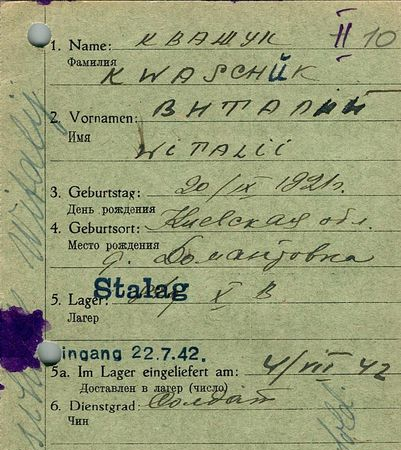 1. Name: КВАЩУК II 10
Фамилия
KWASCHUK
2. Vornamen: ВИТАЛИЙ
Имя
WITALII
3. Geburtstag: 20/IX 1921г.
День рождения
4. Geburtsort: Киевская обл.
Место рождения
д. Домантовка
Stalag
5. Lager: X B
Лагер
ingang 22.7.42.
5a. Im Lager eingeliefert am: 4/VII 42
Доставлен в лагер (число)
6. Dienstgrad: Солдат
Чин
Witalij